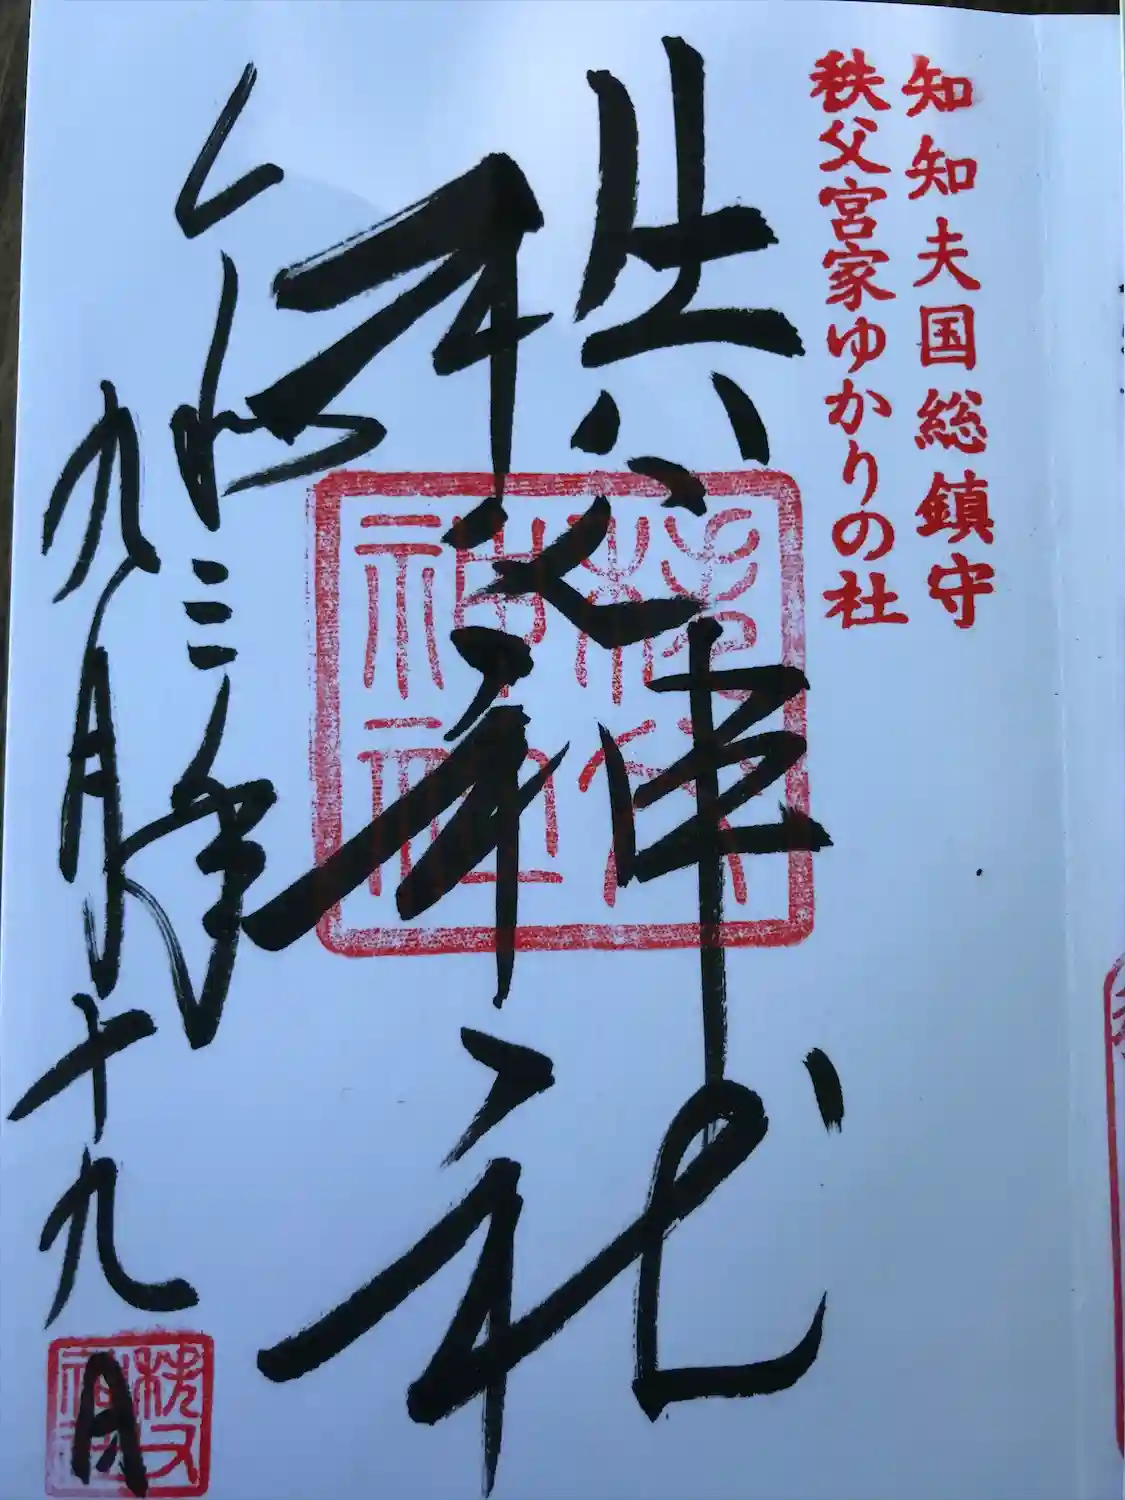 知知夫国総鎮守
秩父宮家ゆかりの社
秩父神社
秩父
神社
令和三年
九月十九日
秩父
神社